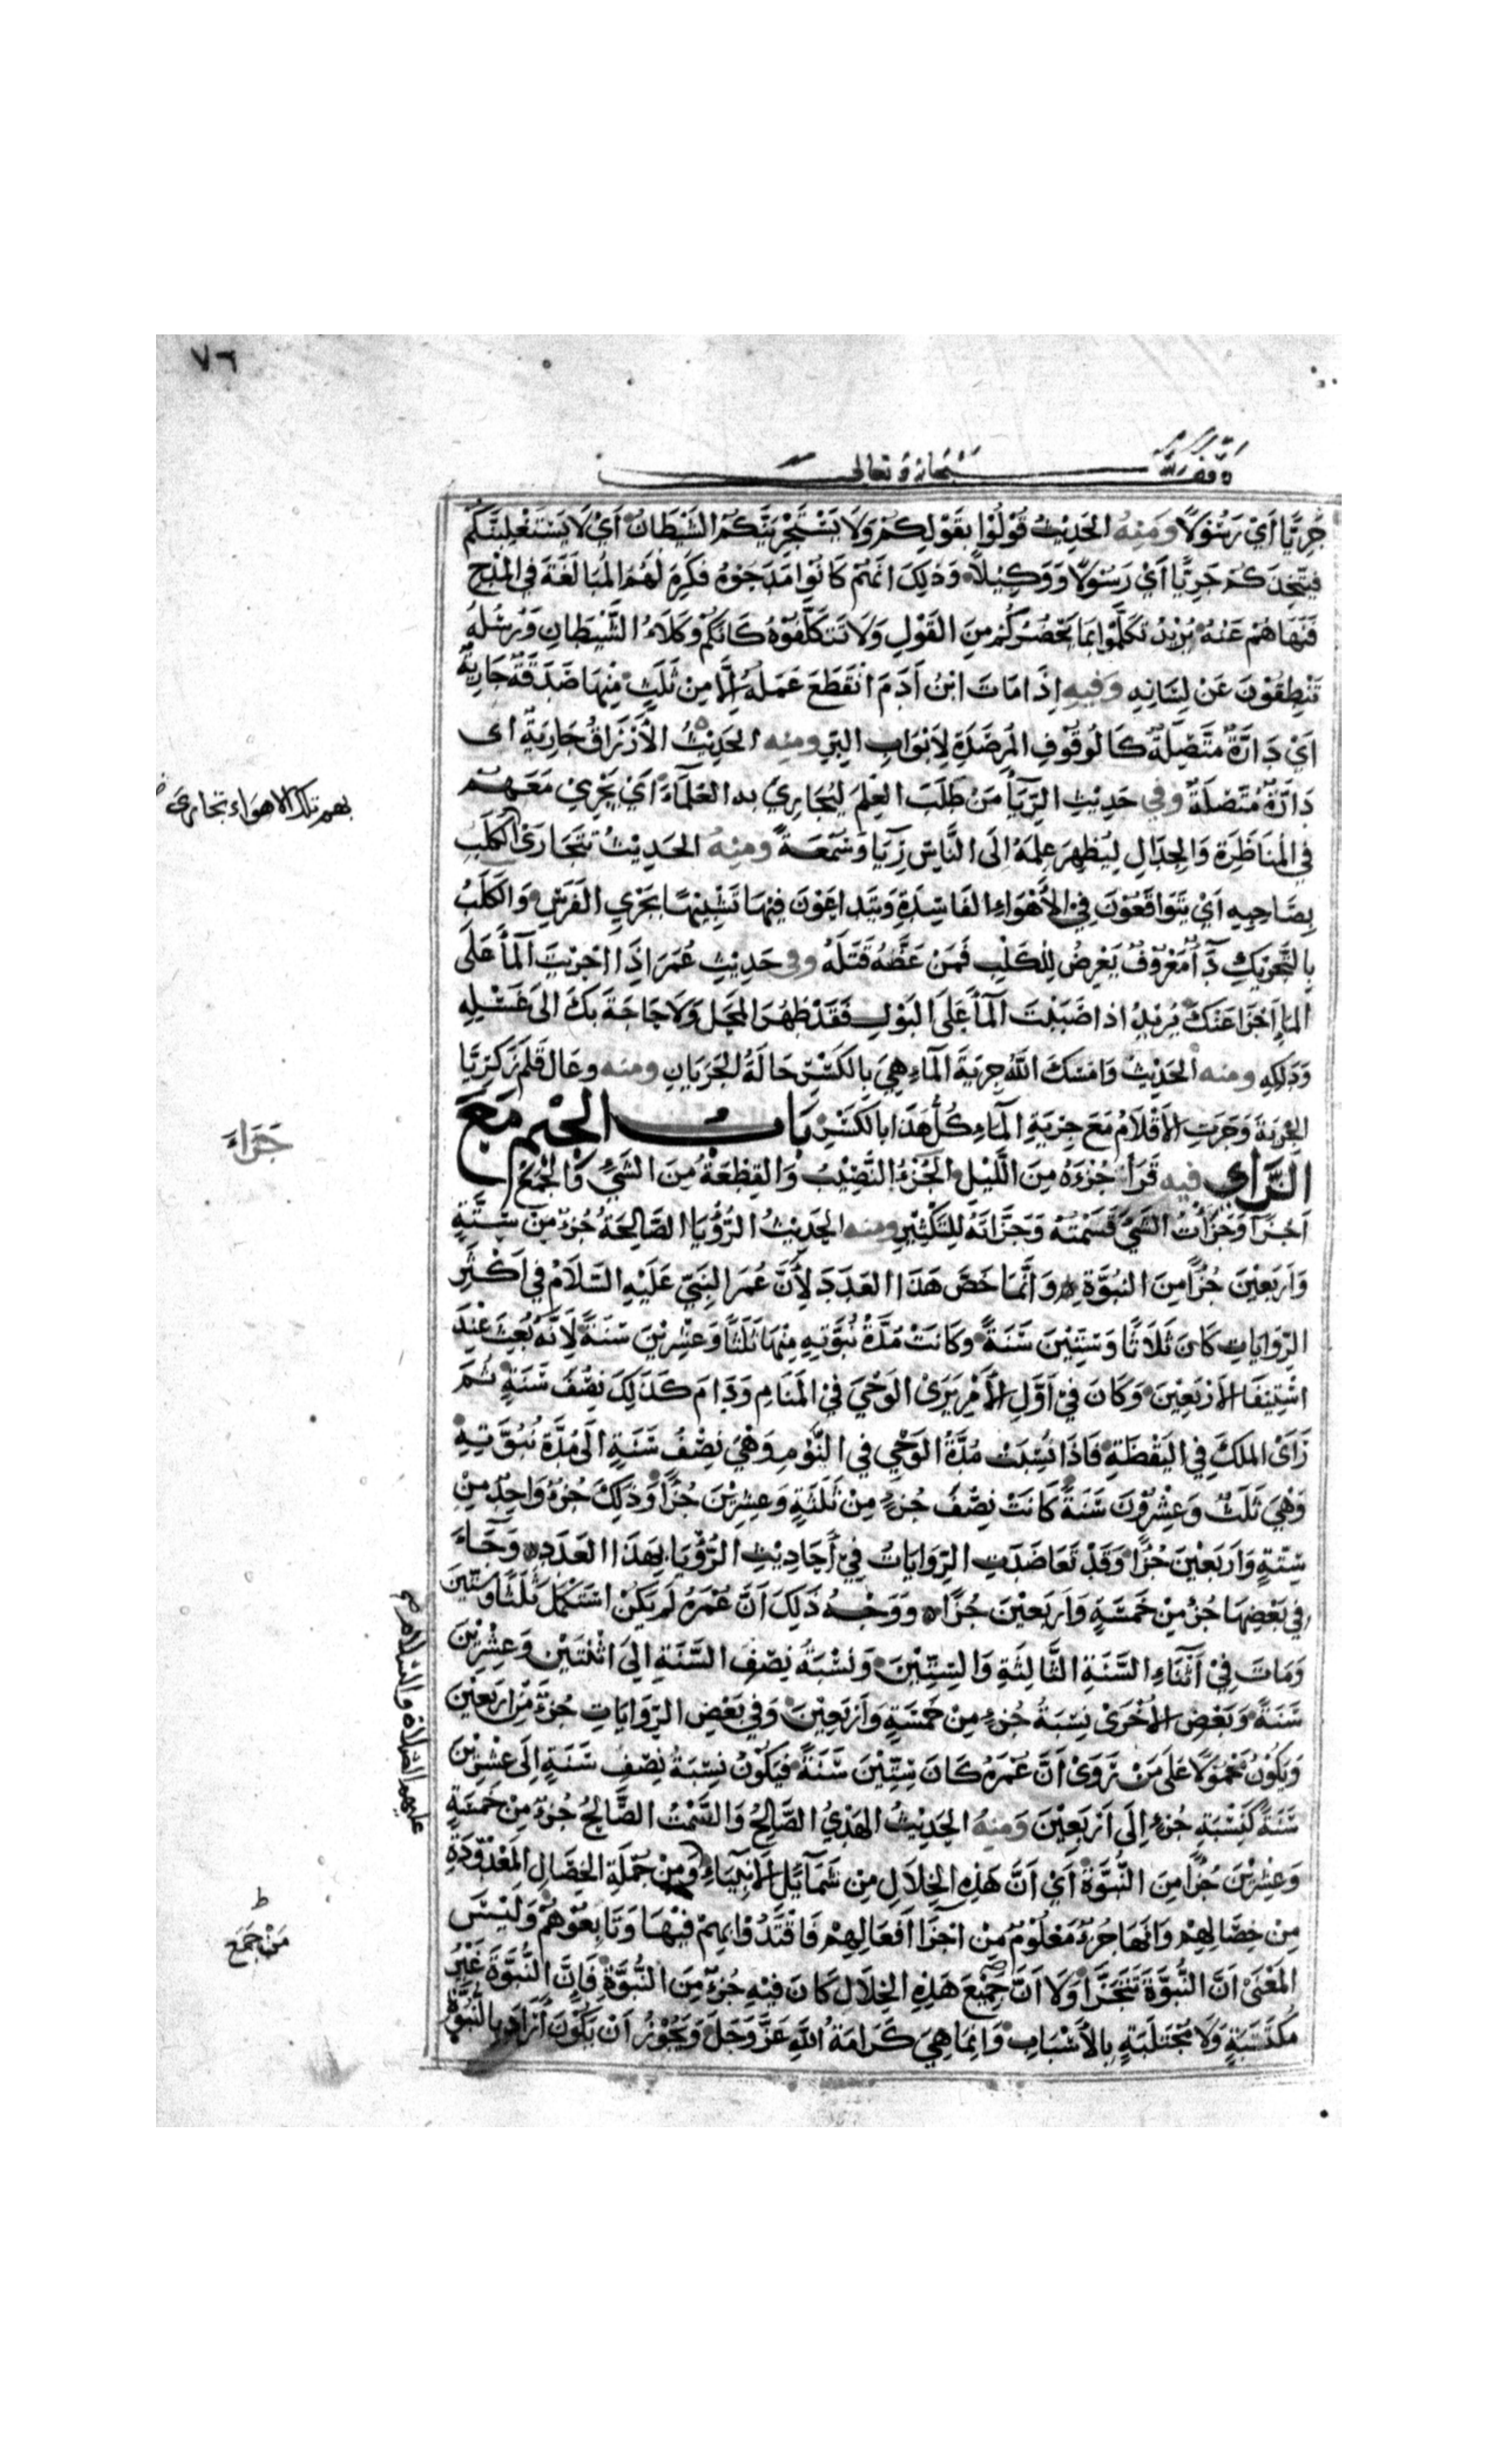 ٧٦
وقف لله سبحانه وتعالى
جَرِيًّا اَيْ رَسُوْلًا وَمِنْهُ الحَدِيْثُ قُوْلُوْا بِقَوْلِكُمْ وَلَا يَسْتَجْرِيَنَّكُمُ الشَّيْطَانُ اَيْ لَا يَسْتَغْلِبَنَّكُمْ
فَيَتَّخِذَكُمْ جَرِيًّا اَيْ رَسُوْلًا وَوَكِيْلًا وَذٰلِكَ اَنَّهُمْ كَانُوْا مَدَحُوْهُ فَكَرِهَ لَهُمُ المُبَالَغَةَ فِي المَدْحِ
فَنَهَاهُمْ عَنْهُ يُرِيْدُ تَكَلَّمُوْا بِمَا يَحْضُرُكُمْ مِنَ القَوْلِ وَلَا تَتَكَلَّفُوْهُ كَاَنَّكُمْ وُكَلَاءُ الشَّيْطَانِ وَرُسُلُهُ
تَنْطِقُوْنَ عَنْ لِسَانِهِ وَفِيهِ اِذَا مَاتَ ابْنُ اٰدَمَ انْقَطَعَ عَمَلُهُ اِلَّا مِنْ ثَلٰثٍ مِنْهَا صَدَقَةٌ جَارِيَةٌ
اَيْ دَارَّةٌ مُتَّصِلَةٌ كَالوُقُوْفِ المُرْصَدَةِ لِاَبْوَابِ البِرِّ ومنه الحَدِيْثُ الأَرْزَاقُ جَارِيَةٌ اى
دَارَّةٌ مُتَّصِلَةٌ وفي حَدِيْثِ الرِّيَاَ مَنْ طَلَبَ العِلْمَ لِيُجَارِيَ به العُلَمَاءَ اَيْ يَجْرِيْ مَعَهُمْ
فِي المُنَاظَرَةِ وَالجِدَالِ لِيُظْهِرَ عِلْمَهُ اِلَى النَّاسِ رِيَآءً وَسُمْعَةً وَمِنْهُ الحَدِيْثُ تَتَجَارَىٰ الكَلَبُ
بهم تلك الاهواء تجارى
بِصَاحِبِهِ اَيْ يَتَوَاقَعُوْنَ فِي الأَهْوَاءِ الفَاسِدَةِ وَيَتَدَاعَوْنَ فِيْهَا تَشْبِيْهًا بِجَرْيِ الفَرَسِ وَالكَلَبُ
بِالتَّحْرِيْكِ دَاءٌ مَعْرُوْفٌ يَعْرِضُ لِلْكَلْبِ فَمَنْ عَضَّهُ قَتَلَهُ وفى حَدِيْثِ عُمَرَ اِذَا اَجْرَيْتَ المَآءَ عَلَى
المَاءِ اَجْزَا عَنْكَ يُرِيْدُ اِذَا صَبَبْتَ المَآءَ عَلَى البَوْلِ فَقَدْ طَهُرَ المَحَلُّ وَلَا حَاجَةَ بِكَ اِلَى غَسْلِهِ
وَدَلْكِهِ ومنه الحَدِيْثُ وَاَمْسَكَ اللّٰهُ جِرْيَةَ المَآءِ هِيَ بِالكَسْرِ حَالَةُ الجَرَيَانِ ومنه وعَالَ قَلَمُ زَكَرِيَّا
الجِرْيَةَ وَجَرَتِ الأَقْلَامُ مَعَ جِرْيَةِ المَآءِ كُلُّ هَذَا بِالكَسْرِ بَابُ الجِيْمِ مَعَ
الزَّاي فيه قَرَاَ جُزْءَهُ مِنَ اللَّيْلِ الجُزْءُ النَّصِيْبُ وَالقِطْعَةُ مِنَ الشَّيْءِ وَالجَمْعُ
جَزَاءَ
اَجْزَاءٌ وَجَزَأْتُ الشَّيْءَ قَسَمْتُهُ وَجَزَّأْتُهُ لِلتَّكْثِيْرِ ومنه الحَدِيْثُ الرُّؤْيَا الصَّالِحَةُ جُزْءٌ مِنْ سِتَّةٍ
وَاَرْبَعِيْنَ جُزْأً مِنَ النُّبُوَّةِ وَاِنَّمَا خَصَّ هَذَا العَدَدَ لِأَنَّ عُمَرَ النَّبِيِّ عَلَيْهِ السَّلَامُ فِي اَكْثَرِ
الرِّوَايَاتِ كَانَ ثَلَاثًا وَسِتِّيْنَ سَنَةً وَكَانَتْ مُدَّةُ نُبُوَّتِهِ مِنْهَا ثَلٰثًا وَعِشْرِيْنَ سَنَةً لِاَنَّهُ بُعِثَ عِنْدَ
اسْتِيْفَا الأَرْبَعِيْنَ وَكَانَ فِيْ اَوَّلِ الأَمْرِ يَرَى الوَحْيَ فِي المَنَامِ وَدَامَ كَذٰلِكَ نِصْفَ سَنَةٍ ثُمَّ
رَاَى المَلَكَ فِي اليَقْظَةِ فَاِذَا نُسِبَتْ مُدَّةُ الوَحْيِ فِي النَّوْمِ وَهْيَ نِصْفُ سَنَةٍ اِلَى مُدَّةِ نُبُوَّتِهِ
وَهْيَ ثَلٰثٌ وَعِشْرُوْنَ سَنَةً كَانَتْ نِصْفَ جُزْءٍ مِنْ ثَلٰثَةٍ وَعِشْرِيْنَ جُزْأً وَذٰلِكَ جُزْءٌ وَاحِدٌ مِنْ
سِتَّةٍ وَاَرْبَعِيْنَ جُزْأً وَقَدْ تَعَاضَدَتِ الرِّوَايَاتُ فِيْ أَحَادِيْثِ الرُّؤْيَا بِهَذَا العَدَدِ وَجَاءَ
فِي بَعْضِهَا جُزْءٌ مِنْ خَمْسَةٍ وَاَرْبَعِيْنَ جُزْأً وَوَجْهُ ذٰلِكَ اَنَّ عُمْرَهُ لَمْ يَكُنْ اسْتَكْمَلَ ثَلٰثًا وَسِتِّيْنَ
وَمَاتَ فِيْ اَثْنَاءِ السَّنَةِ الثَّالِثَةِ وَالسِّتِّيْنَ وَنِسْبَةُ نِصْفِ السَّنَةِ اِلَى اثْنَتَيْنِ وَعِشْرِيْنَ
سَنَةً وَبَعْضِ الأُخْرَى نِسْبَةُ جُزْءٍ مِنْ خَمْسَةٍ وَاَرْبَعِيْنَ وَفِي بَعْضِ الرِّوَايَاتِ جُزْءٌ مِنْ اَرْبَعِيْنَ
وَيَكُوْنُ مَحْمُوْلًا عَلَى مَنْ رَوَىٰ اَنَّ عُمْرَهُ كَانَ سِتِّيْنَ سَنَةً فَيَكُوْنُ نِسْبَةُ نِصْفِ سَنَةٍ اِلَى عِشْرِيْنَ
سَنَةً كَنِسْبَةِ جُزْءٍ اِلَى اَرْبَعِيْنَ وَمِنْهُ الحَدِيْثُ الهَدْيُ الصَّالِحُ وَالسَّمْتُ الصَّالِحُ جُزْءٌ مِنْ خَمْسَةٍ
وَعِشْرِيْنَ جُزْأً مِنَ النُّبُوَّةِ اَيْ اَنَّ هَذِهِ الخِلَالَ مِنْ شَمَآئِلِ الأَنْبِيَاءِ وَمِنْ جُمْلَةِ الخِصَالِ المَعْدُوْدَةِ
عليهم الصلاة والسلام
مِنْ خِصَالِهِمْ وَاَنَّهَا جُزْءٌ مَعْلُوْمٌ مِنْ اَجْزَاءِ اَفْعَالِهِمْ فَاقْتَدُوْا بِهِمْ فِيْهَا وَتَابِعُوْهُمْ وَلَيْسَ
ط
مَنْ جَمَعَ
المَعْنَى اَنَّ النُّبُوَّةَ تَتَجَزَّأُ وَلَا اَنَّ جَمِيْعَ هَذِهِ الخِلَالِ كَانَ فِيْهِ جُزْءٌ مِنَ النُّبُوَّةِ فَاِنَّ النُّبُوَّةَ غَيْرُ
مُكْتَسَبَةٍ وَلَا مُجْتَلَبَةٍ بِالأَسْبَابِ وَاِنَّمَا هِيَ كَرَامَةُ اللّٰهِ عَزَّ وَجَلَّ وَيَجُوْزُ اَنْ يَكُوْنَ اَرَادَ بِالنُّبُوَّةِ